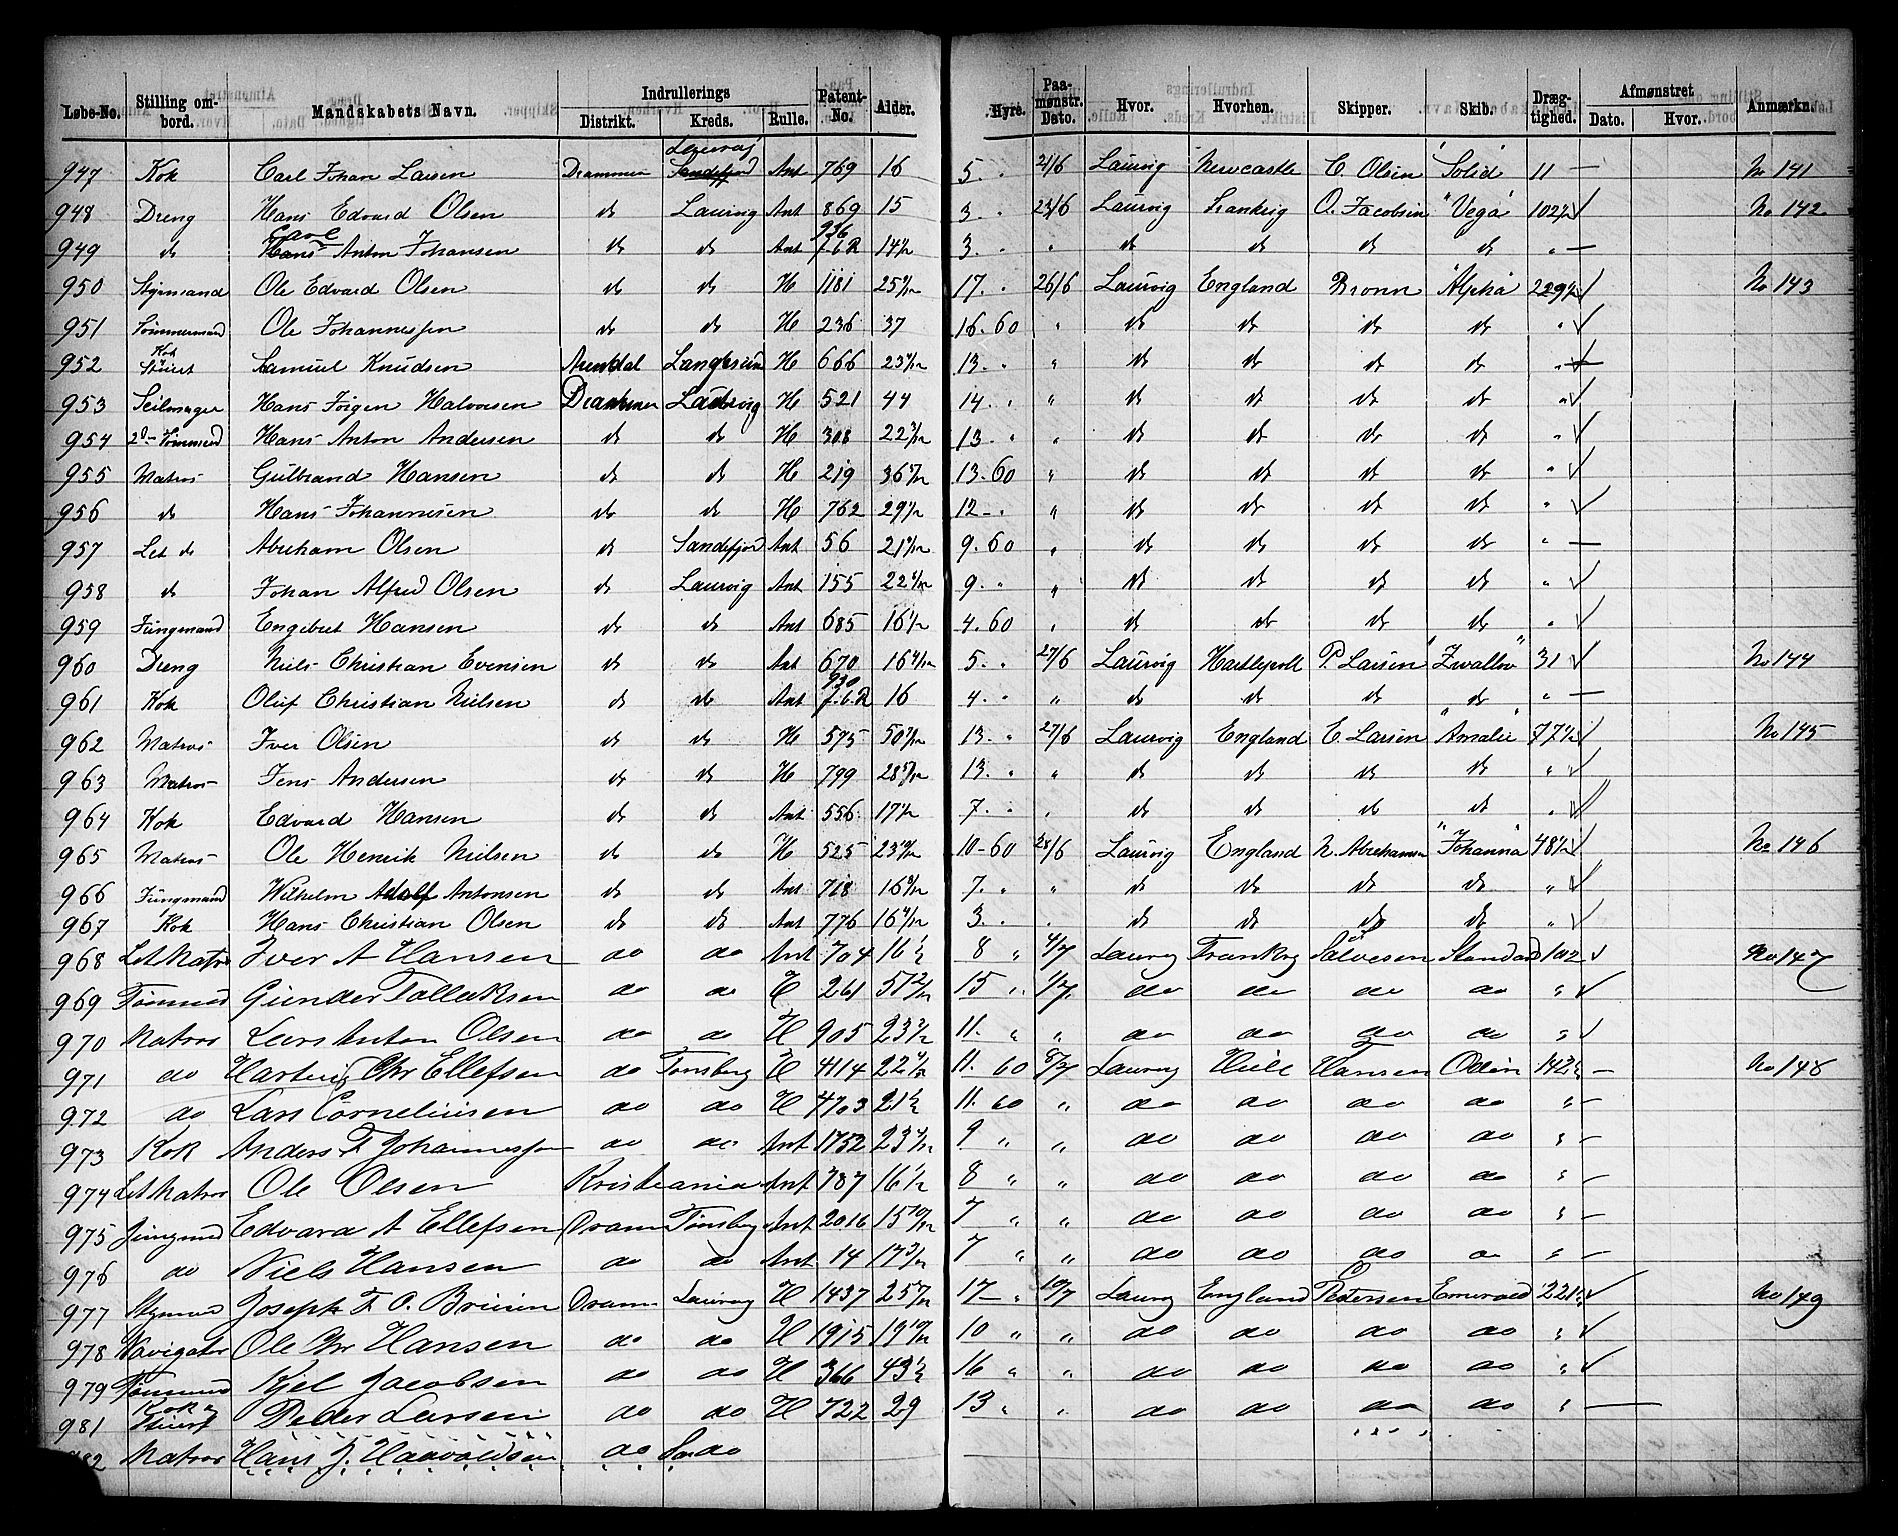 Løbe-No. Stilling ombord. Mandskabets Navn. Indrullerings Distrikt. Kreds. Rulle. Patent-No. Alder. Hyre. Paamønstr. Dato. Hvor. Hvorhen. Skipper. Skib. Dræg-tighed. Afmønstret Dato. Hvor. Anmærkn.
947 Kok Carl Johan Larsen Drammen Laurvig Sandefjord Ant 769 16 5 " 21/6 Laurvig Newcastle C. Olsen "Solid" 11 — No 141
948 Dreng Hans Edvard Olsen do Laurvig Ant 869 15 3 " 23/6 Laurvig O. Jacobsen "Vega" 102 ✓ No 142
949 do Carl Hans Anton Johansen do do Ant 936 f. 6 R 14 3. " do do do do " —
950 Styrmand Ole Edvard Olsen do do H 1181 25 17. " 26/6 Laurvig England Bronn "Alpha" 229 ✓ No 143
951 Tømmermand Ole Johannessen do do H 236 37 16. 60 " do do do do " ✓
952 Kok Stuert Samuel Knudsen Arendal Langesund H 666 23 13. " " do do do do " —
953 Seilmager Hans Jörgen Halvorsen Drammen Laurvig H 521 44 14. " " do do do do " ✓
954 Hans Anton Andersen do do H 308 22 13 " " do do do do " ✓
955 Matros Gulbrand Hansen do do H 219 36 13. 60 " do do do do " ✓
956 do Hans Johannesen do do H 762 29 12 " " do do do do " ✓
957 Let do Abraham Olsen do Sandefjord Ant 56 21 9. 60 " do do do do " —
958 do Johan Alfred Olsen do Laurvig Ant 155 22 9. " " do do do do " ✓
959 Jungmand Engebret Hansen do do Ant 685 16 4. 60 " do do do do " ✓
960 Dreng Niels Christian Evensen do do Ant 670 16 5. " 27/6 Laurvig Hartlepool P. Larsen "Zwallov" 31 ✓ No 144
961 Kok Oluf Christian Nielsen do do Ant 930 f. 6. R 16 4. " " do do do do " —
962 Matros Iver Olsen do do H 575 50 13. " 27/6 Laurvig England E. Larsen "Amalie" 77 ✓ No 145
963 Matros Jens Andersen do do H 799 28 13. " " do do do do " ✓
964 Kok Edvard Hansen do do Ant 556 17 7. " " do do do do " ✓
965 Matros Ole Henrik Nielsen do do H 525 23 10 - 60 28/6 Laurvig England N. Abrahamsen "Johanna" 48 ✓ No 146
966 Jungmand Wilhelm Adolf Antonsen do do Ant 718 16 7. " " do do do do " ✓
967 Kok Hans Christian Olsen do do Ant 776 16 3. " " do do do do " ✓
968 Let Matros Iver A Hansen do do Ant 704 16½ 8 " 4/7 Laurvig Salvesen Standard 102 ✓ No 147
969 Tømmmd Gunder Tallaksen do do H 261 57 15 " 4/7 do do do do " ✓
970 Matros Lars Anton Olsen do do H 905 23 11. " " do do do do " ✓
971 do Hartvig Chr Ellefsen do Tønsberg H 4114 22 11. 60 8/7 Laurvig Hull Hansen Odin 142 — No 148
972 do Lars Corneliusen do do H 4703 21½ 11. 60 " do do do do " —
973 Kok Anders F Johannessen do do Ant 1752 23 9 " " do do do do " —
974 Let Matros Ole Olsen Kristiania Ant 787 16½ 8 " " do do do do " —
975 Jungmd Edvard A Ellefsen Dram Tønsberg Ant 2016 15 10/12 7 " " do do do do " —
976 do Niels Hansen do do Ant 14 17 3/12 7 " " do do do do " —
977 Styrmnd Joseph F. O. Bruun Dram Laurvig H 1437 25 17 " 10/7 Laurvig England Pettersen Emerald 221 ✓ No 149
978 Navigatør Ole Chr Hansen do do H 1915 19 10 " " do do do do " ✓
979 Tømmmd Kjel Jacobsen do do H 366 43½ 16 " " do do do do " ✓
981 Kok & Stuert Peder Larsen do do H 722 29 13 " " do do do do " —
82 Matros Hans J. Haavaldsen do do